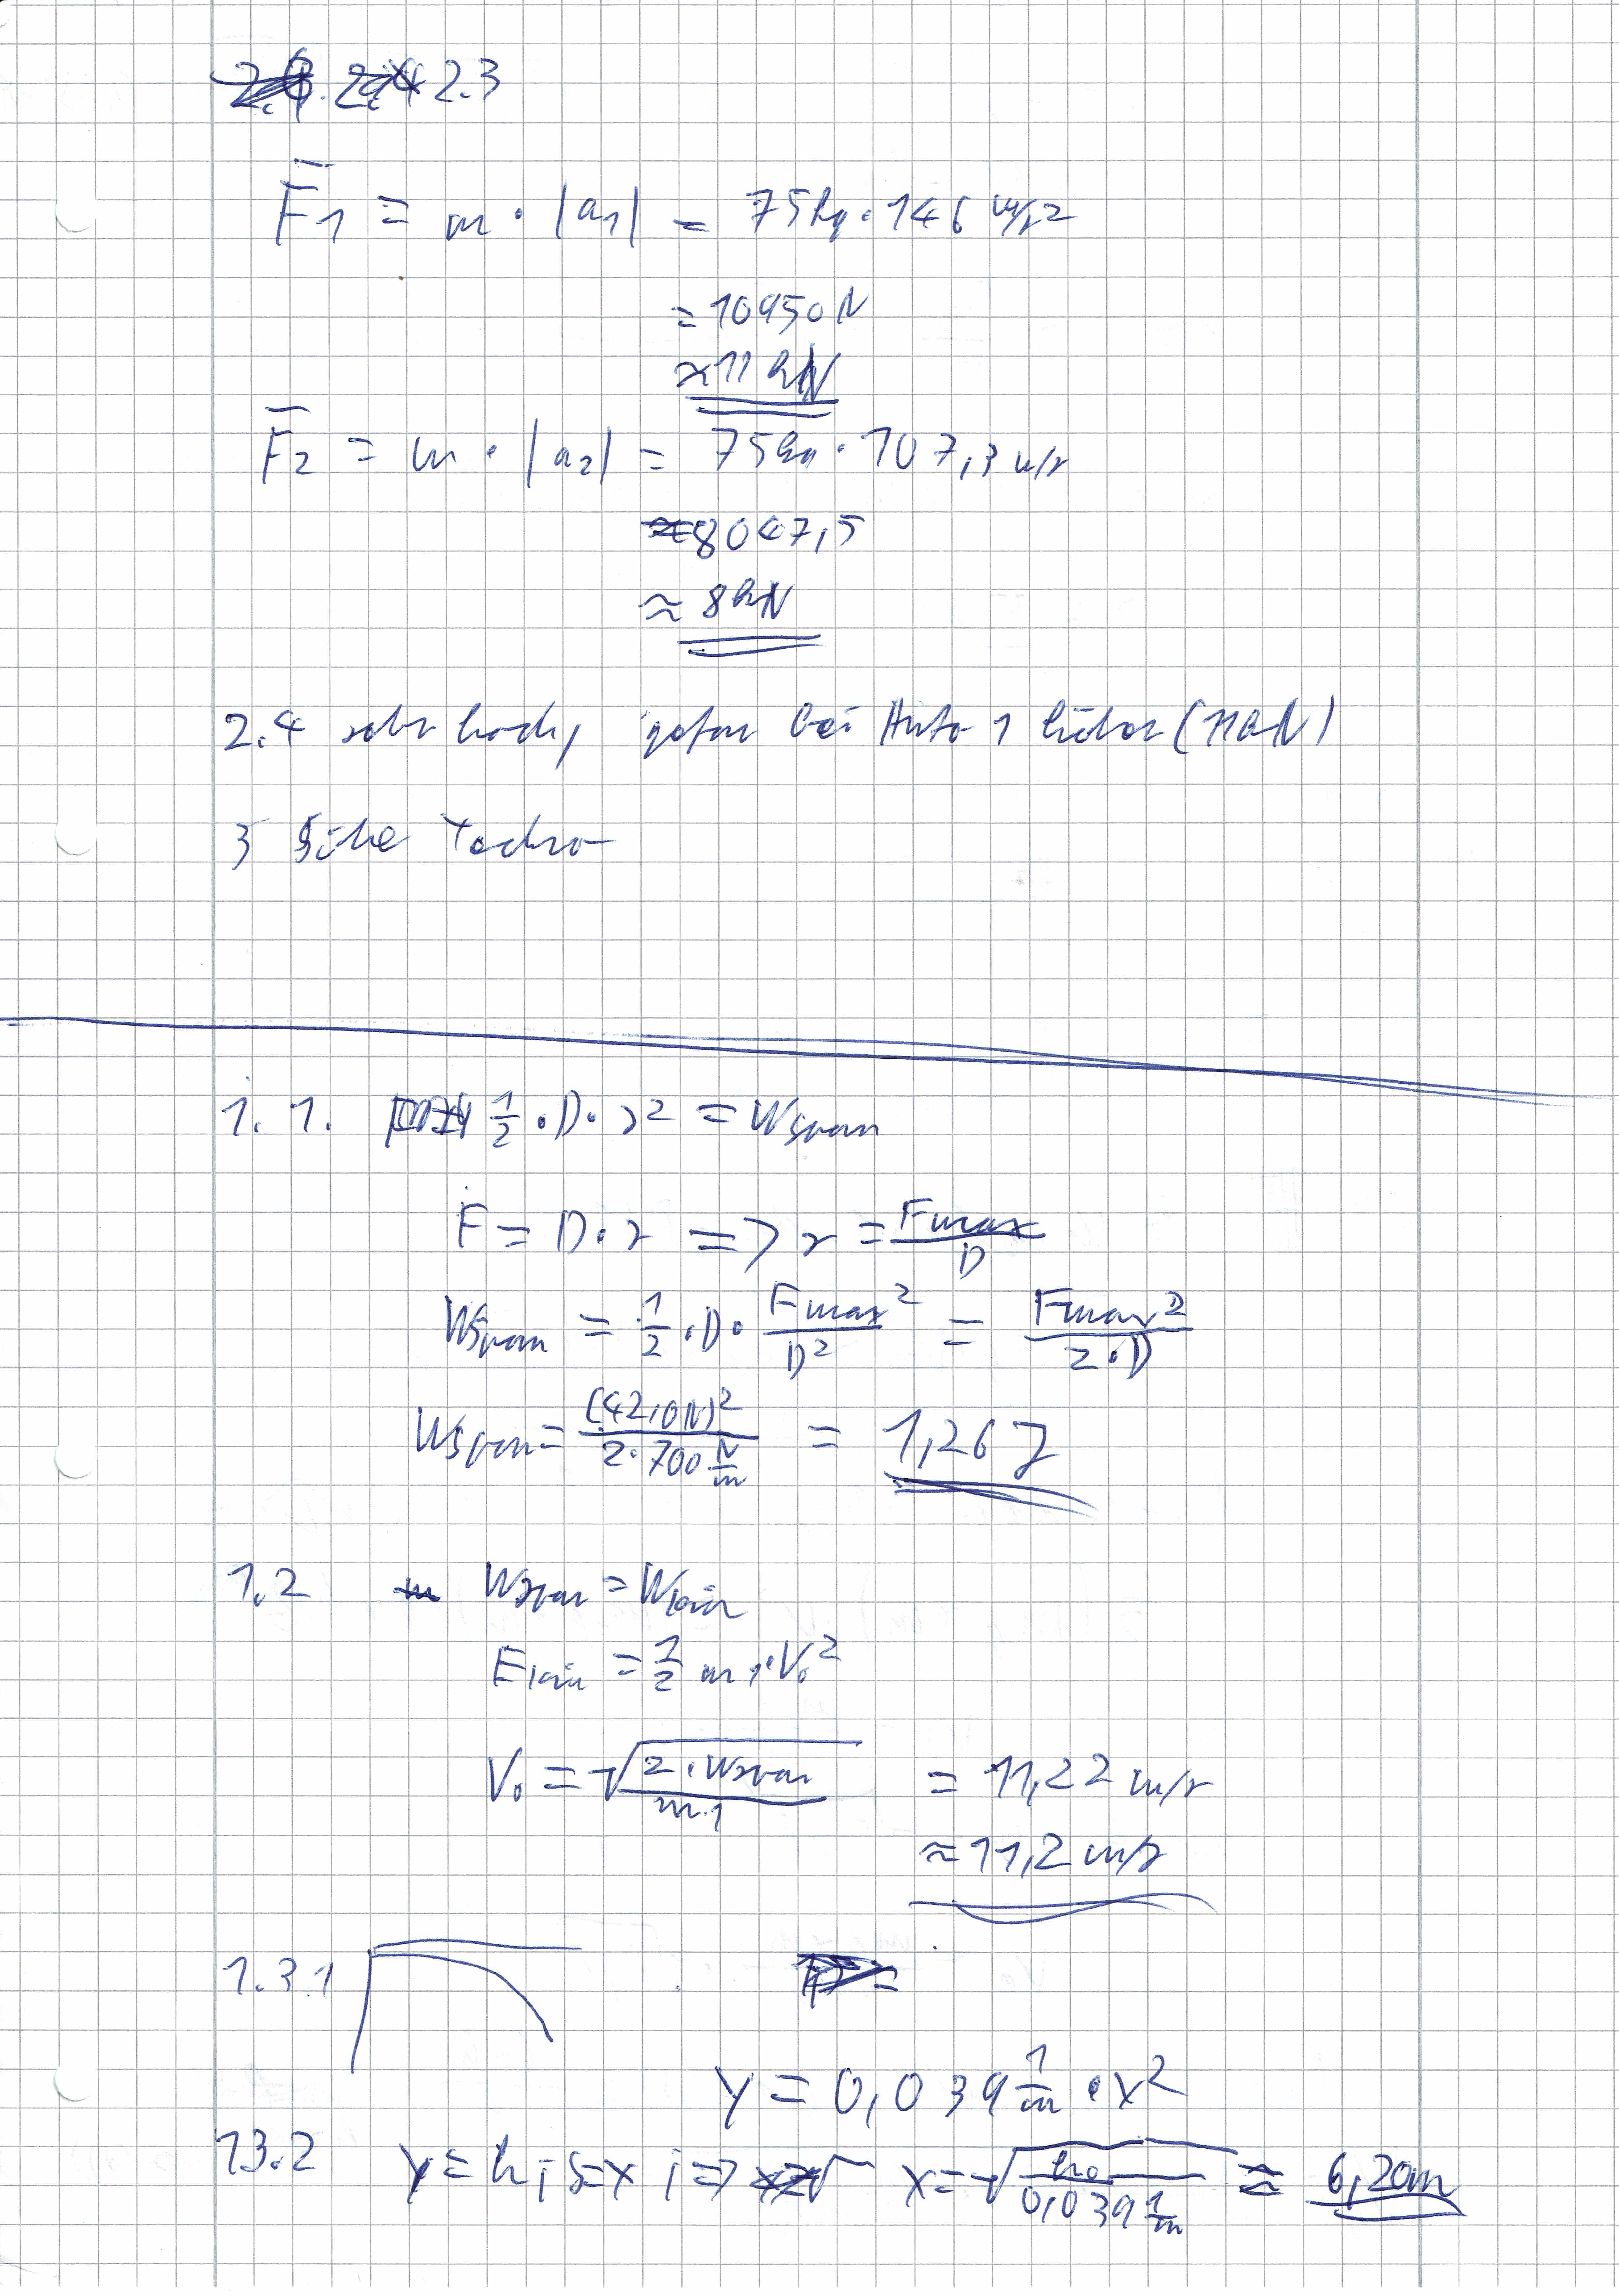 2.3
F̅1 = m · |a1| = 75kg · 146 m/s2
= 10950N
≈ 11 kN
F̅2 = m · |a2| = 75kg · 107,3 m/s
≈ 8047,5
≈ 8kN
2.4 sehr hoch, bei Auto 1 (11kN)
3 Siehe
1. 1. 1/2 · D · s2 = Wspan
F = D · s => s = Fmax/D
Wspan = 1/2 · D · Fmax2/D2 = Fmax2/2 · D
Wspan = (42,0N)2/2 · 700 N/m = 1,26 J
1.2 Wspan = Wkin
Ekin = 1/2 m1 · V02
V0 = √(2 · Wspan/m1) = 11,22 m/s
≈ 11,2 m/s
1.3.1
y = 0,039 1/m · x2
1.3.2 y = h ; s = x ; => x = √(h0/0,039 1/m) ≈ 6,20m